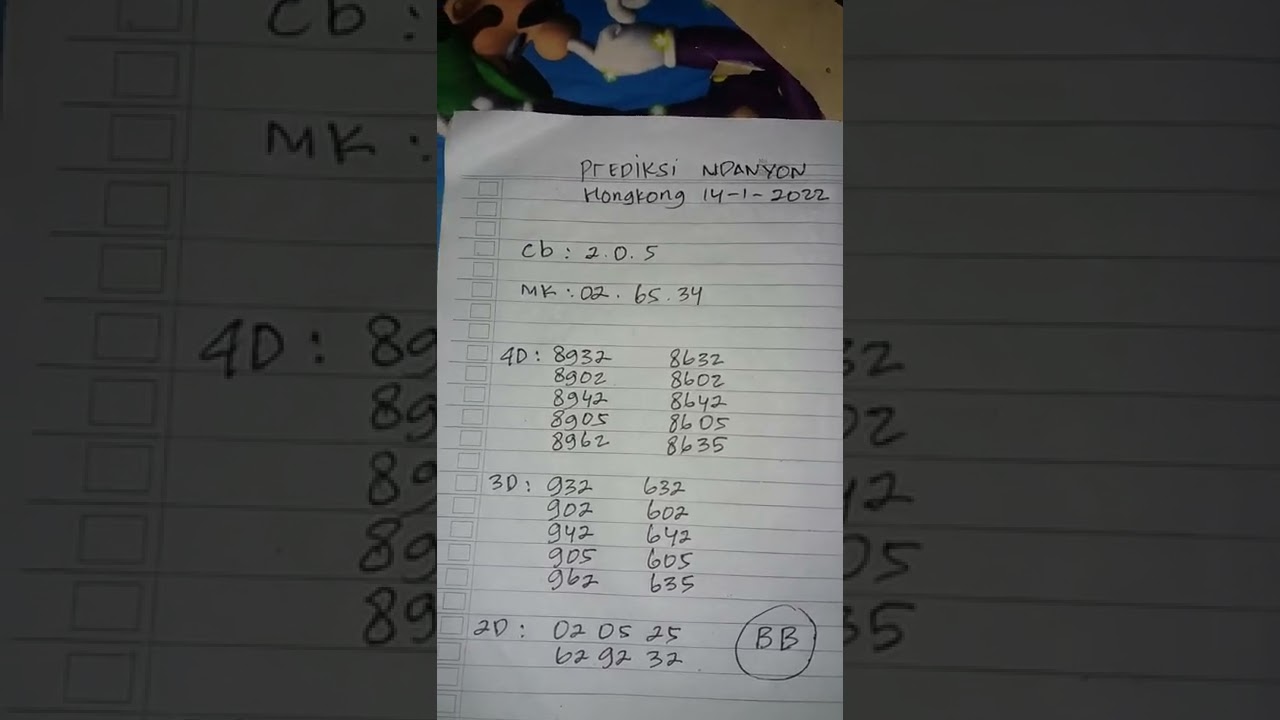 PrEDiKSi NDANYON
Hongkong 14-1-2022
Cb : 2.0.5
MK : 02. 65. 34
4D : 8932 8632
8902 8602
8942 8642
8905 8605
8962 8635
3D : 932 632
902 602
942 642
905 605
962 635
2D : 02 05 25
62 92 32
BB